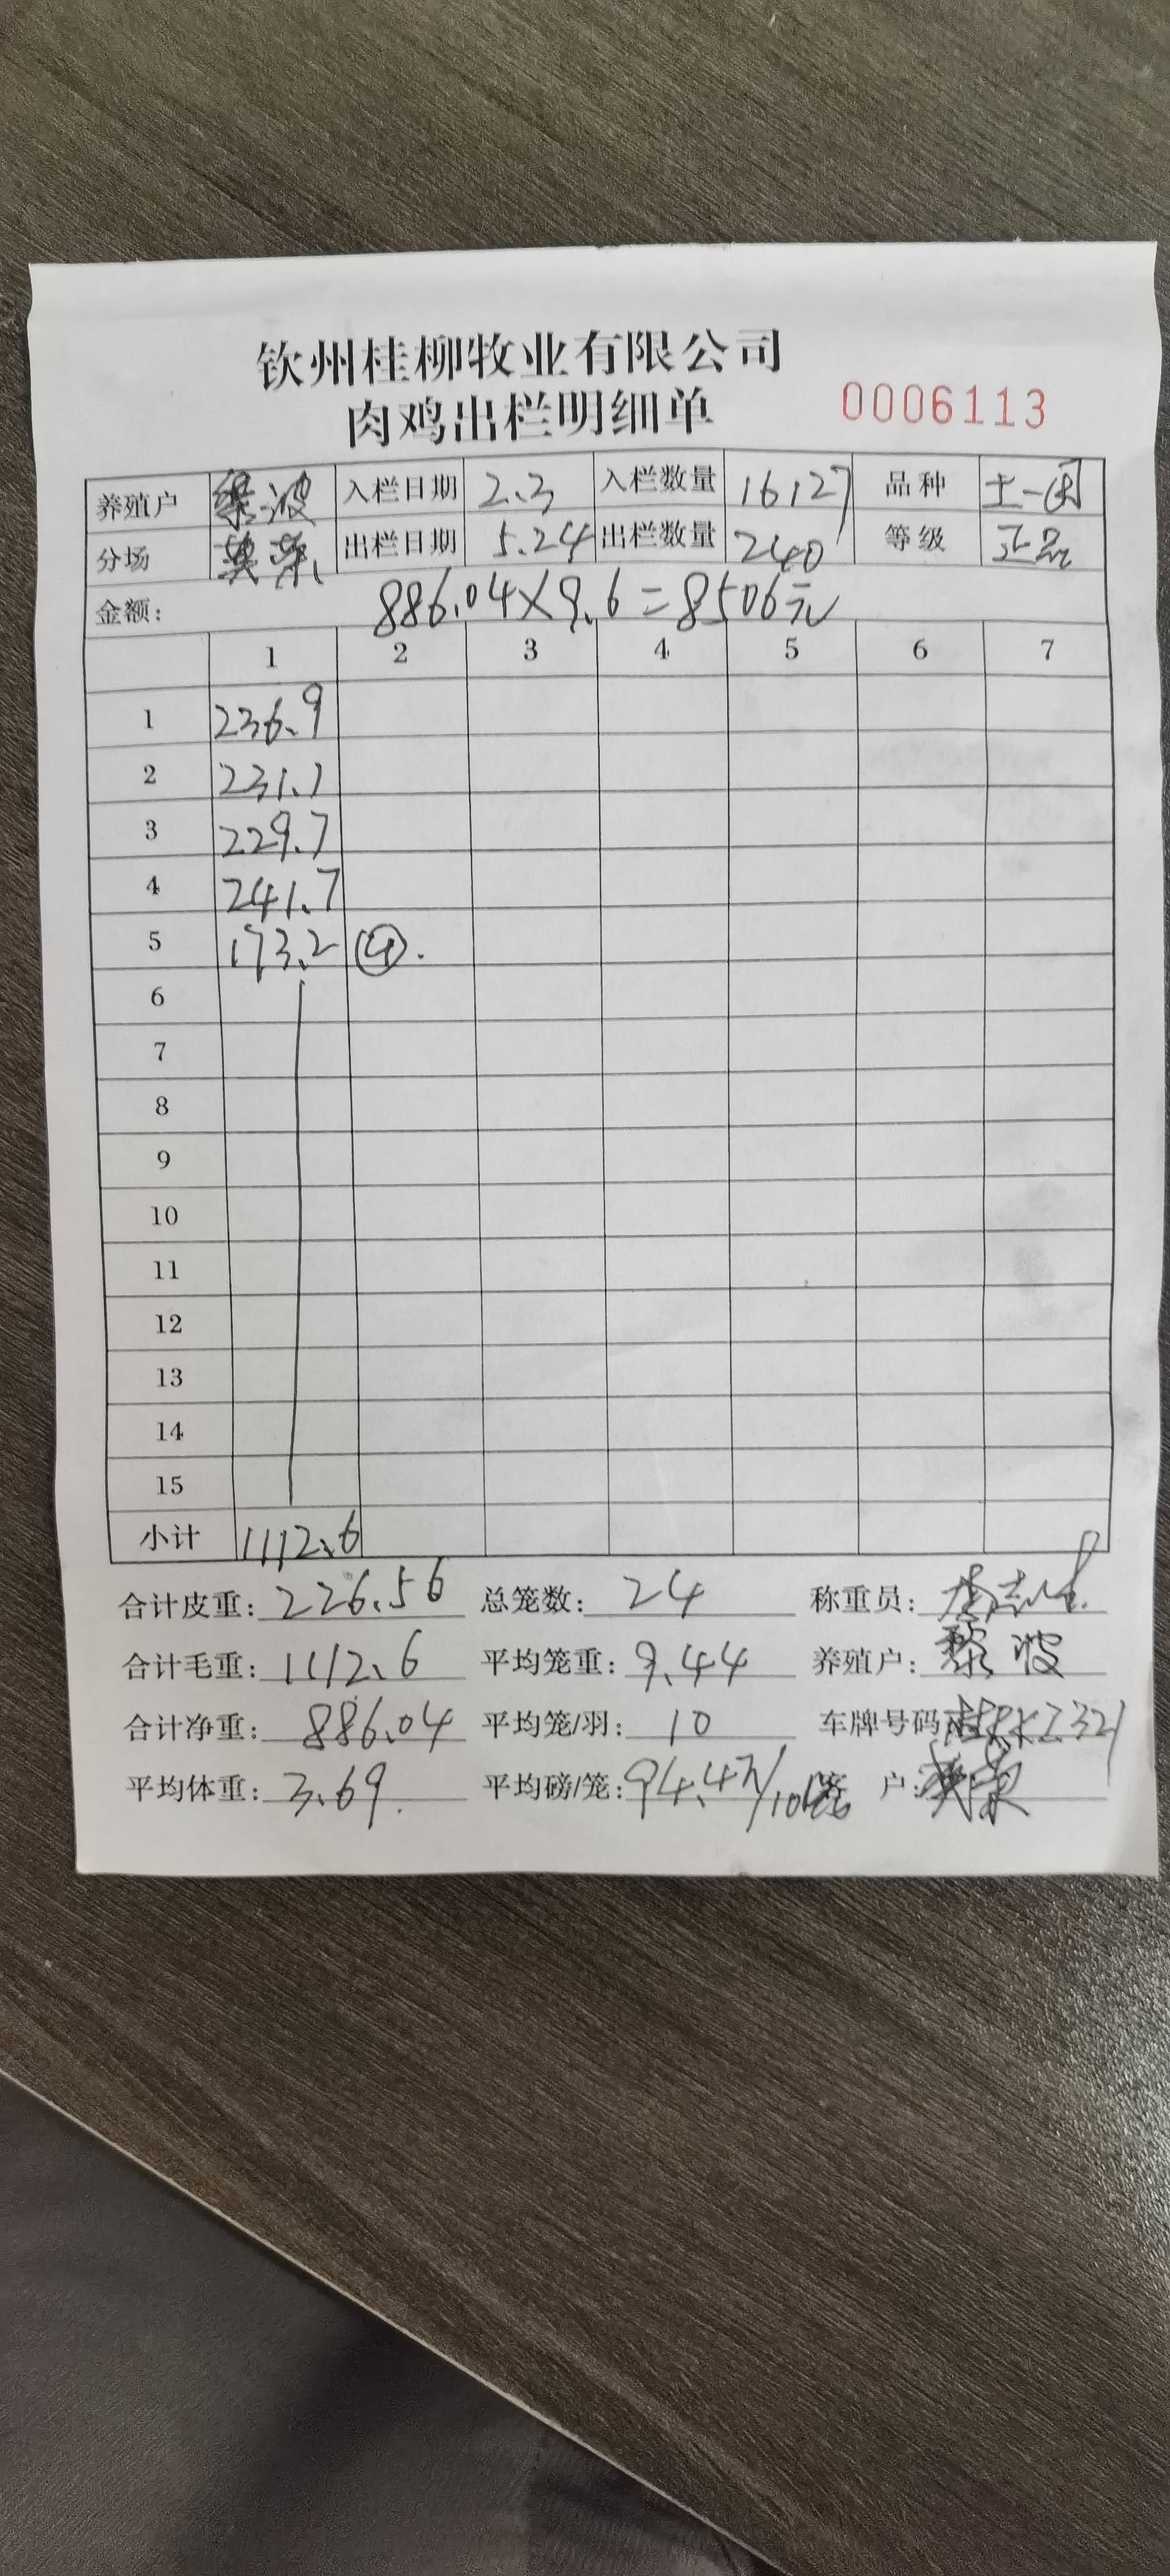 钦州桂柳牧业有限公司
肉鸡出栏明细单 0006113
养殖户 黎波 入栏日期 2.3 入栏数量 16127 品种 土一
分场 出栏日期 5.24 出栏数量 240 等级 正品
金额: 886.04×9.6=8506元
1 2 3 4 5 6 7
1 236.9
2 231.1
3 229.7
4 241.7
5 173.2 ④.
6
7
8
9
10
11
12
13
14
15
小计 1112.6
合计皮重: 226.56 总笼数: 24 称重员:
合计毛重: 1112.6 平均笼重: 9.44 养殖户: 黎波
合计净重: 886.04 平均笼/羽: 10 车牌号码
平均体重: 3.69. 平均磅/笼: 94.4 户: